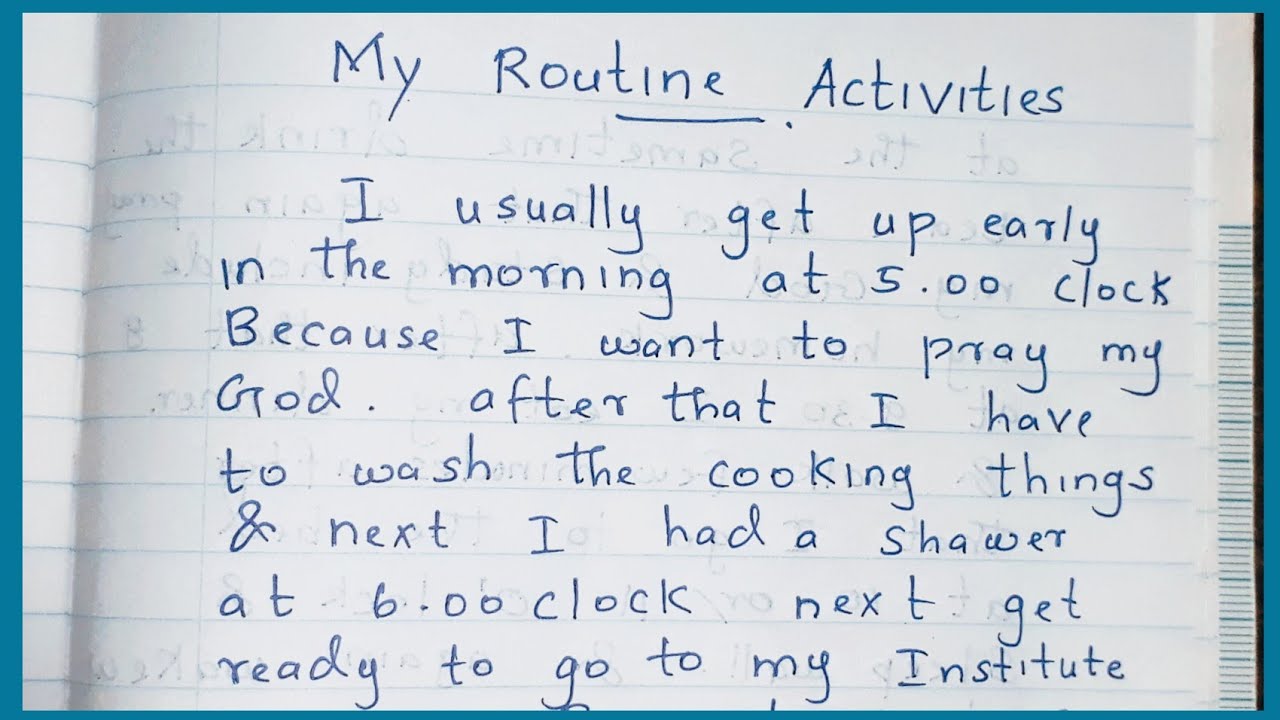 My Routine Activities
I usually get up early
in the morning at 5.00 clock
Because I want to pray my
God. after that I have
to wash the cooking things
& next I had a shawer
at 6.00 clock next get
ready to go to my Institute